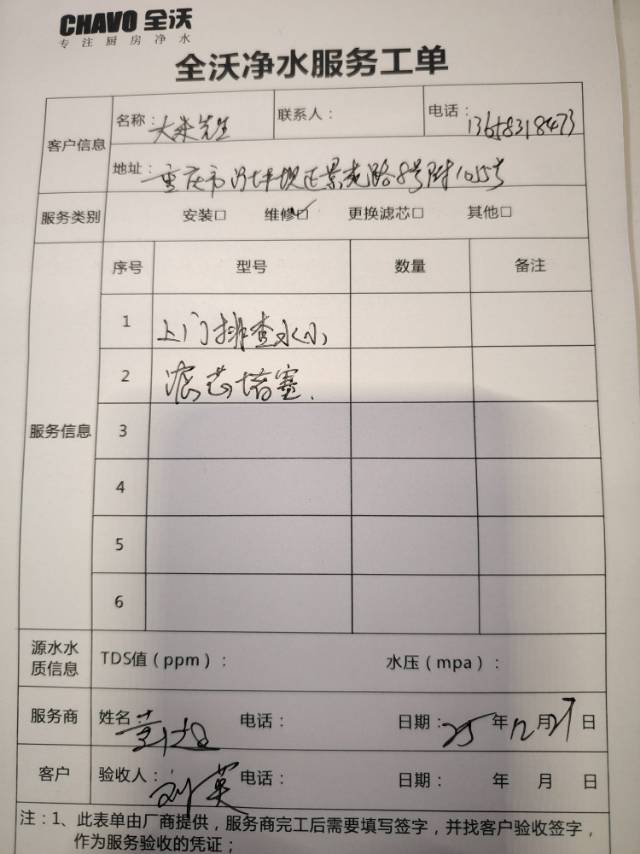 CHAVO 全沃
专注厨房净水
全沃净水服务工单
客户信息
名称：大朱先生
联系人：
电话：13658318473
地址：重庆市沙坪坝区景苑路8号附105号
服务类别 安装□ 维修☑ 更换滤芯□ 其他□
服务信息
序号 型号 数量 备注
1 上门排查水小
2 滤芯堵塞.
3
4
5
6
源水水质信息
TDS值（ppm）： 水压（mpa）：
服务商 姓名 电话： 日期：25年12月27日
客户 验收人：刘英 电话： 日期： 年 月 日
注：1、此表单由厂商提供，服务商完工后需要填写签字，并找客户验收签字，
作为服务验收的凭证；